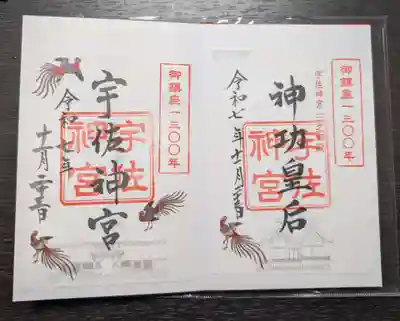 御鎮座一三〇〇年
宇佐神宮
令和七年
十一月二十三日
宇佐
神宮
御鎮座一三〇〇年
宇佐神宮 三之御殿
神功皇后
令和七年十一月二十三日
宇佐
神宮